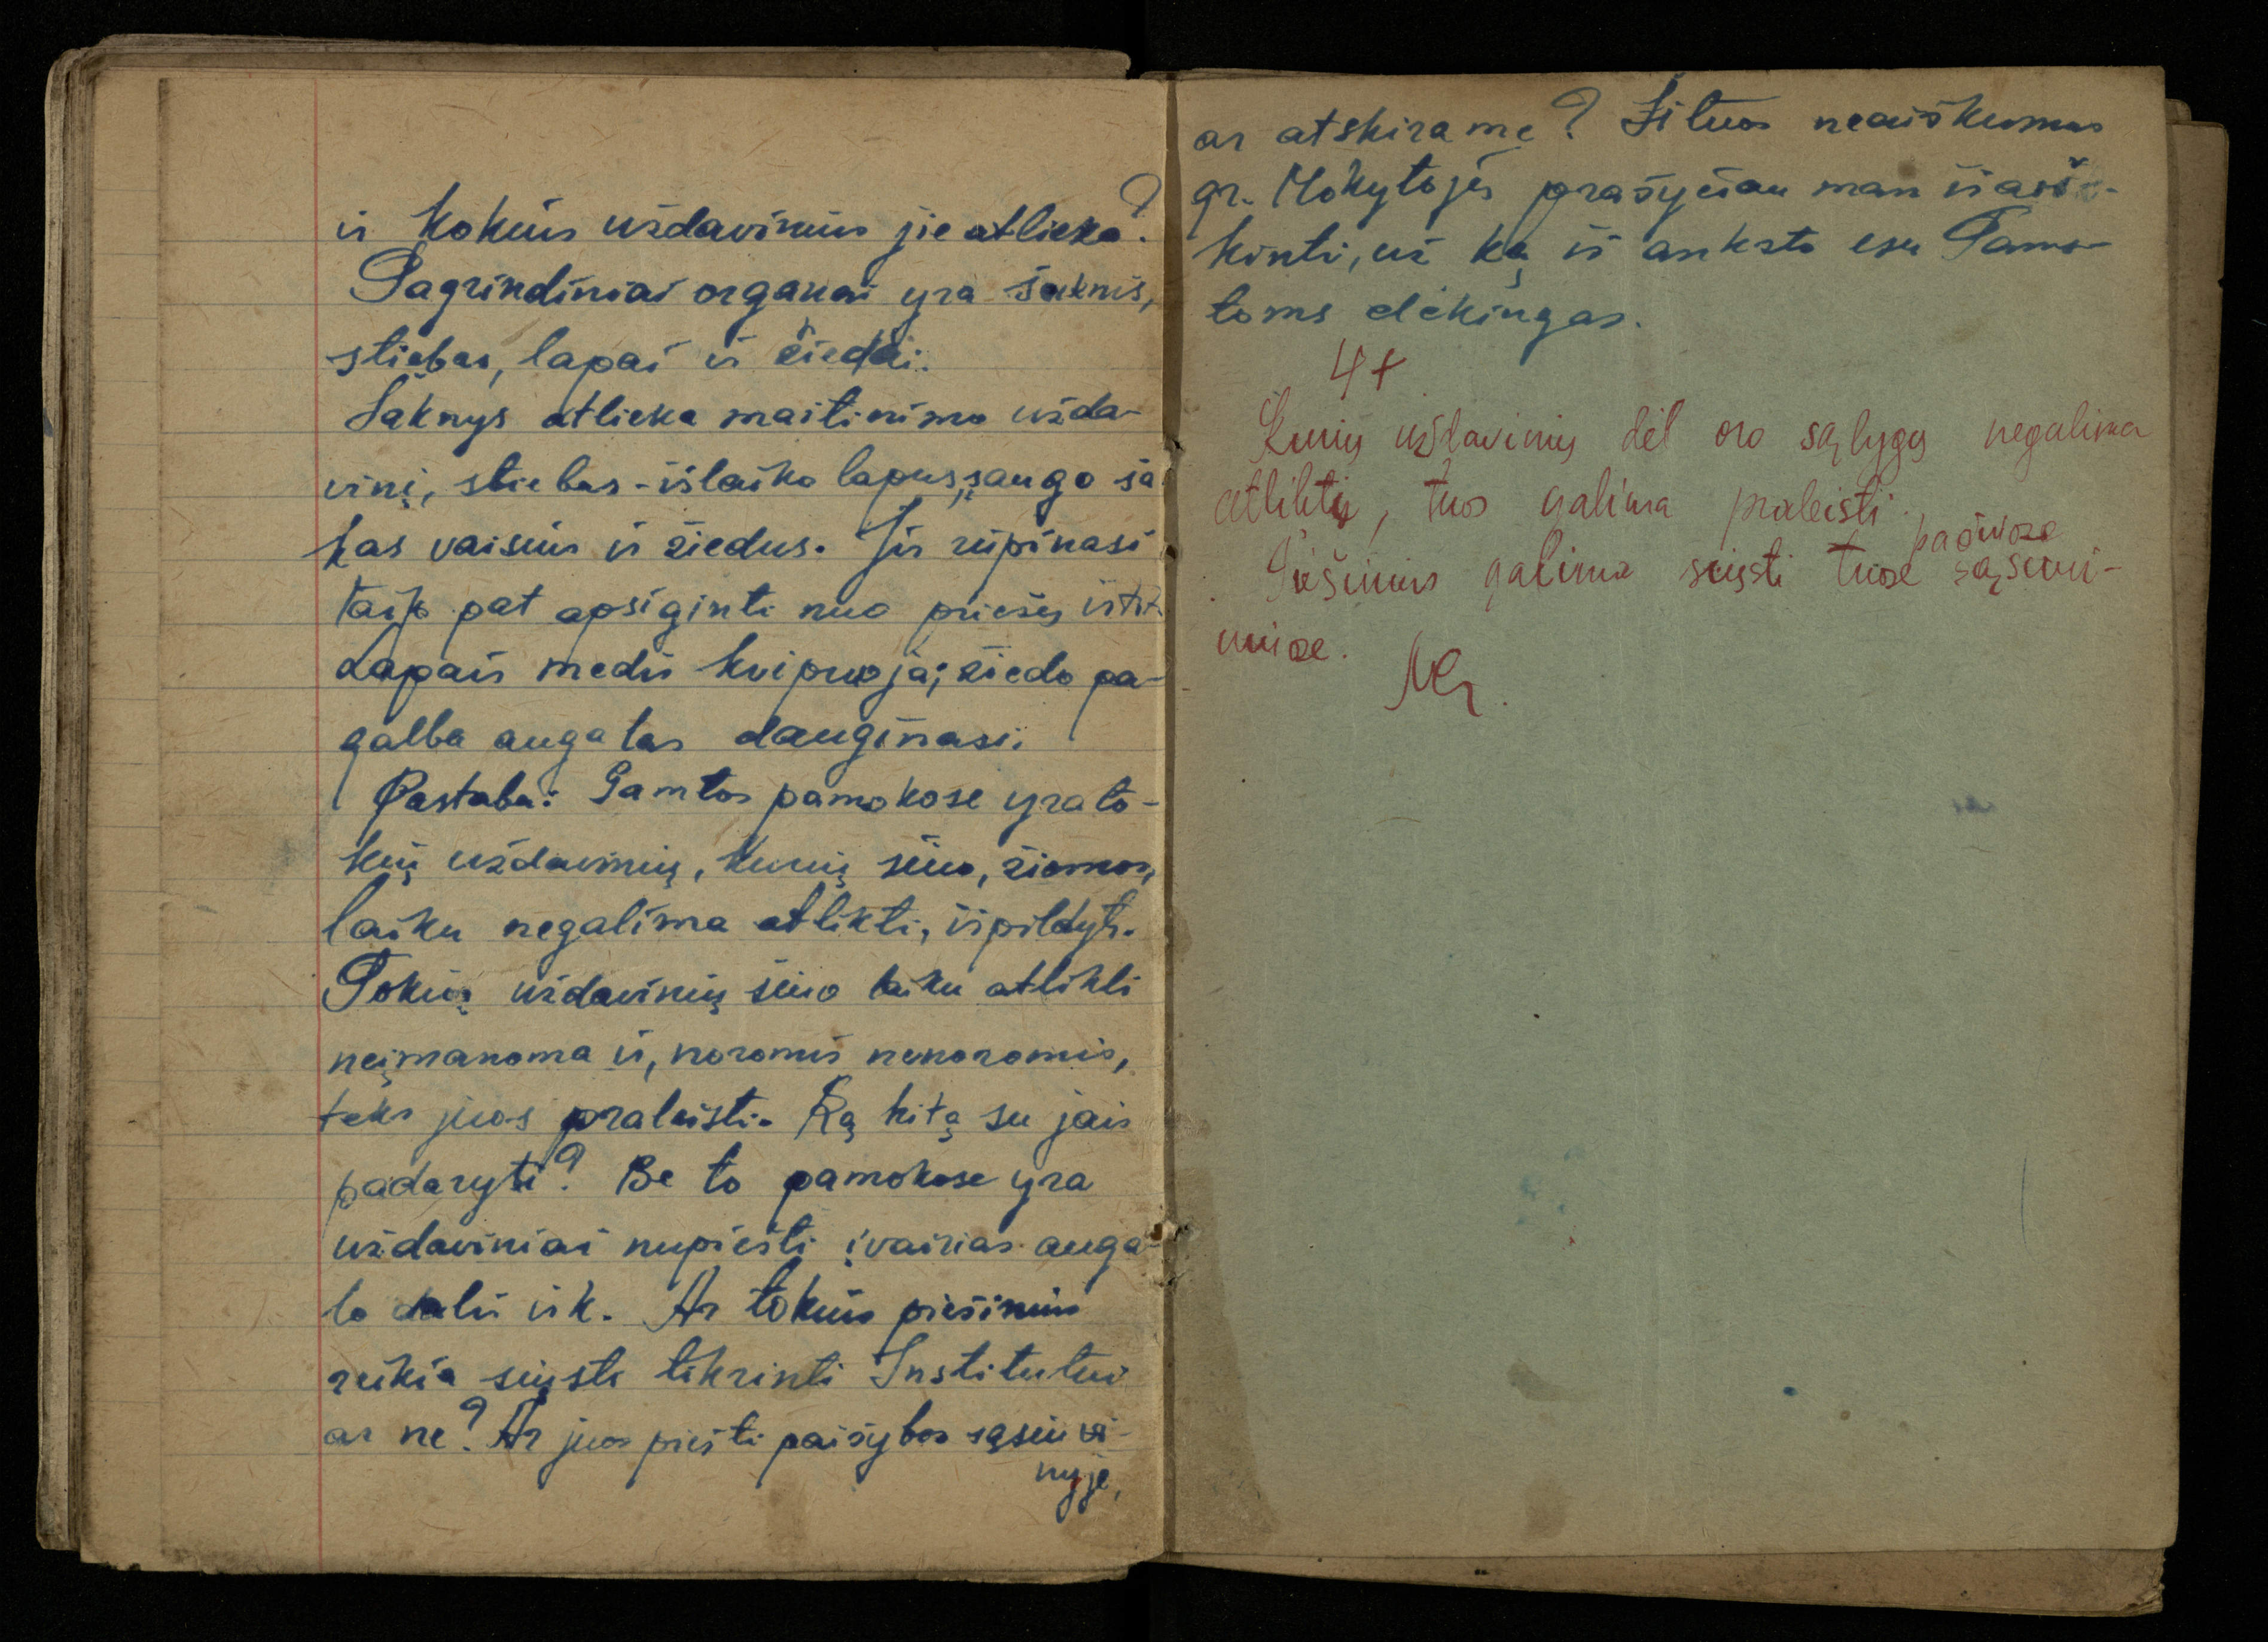 ir kokius uždavinius jie atlieka?
Pagrindiniai organai yra šaknis,
stiebas, lapai ir žiedai.
Šaknys atlieka maitinimo užda-
vinį, stiebas - išlaiko lapus, saugo ša
kas vaisius ir žiedus. Jis rūpinasi
taip pat apsiginti nuo priešų ir t.t.
Lapais medis kvėpuoja; žiedo pa-
galba augalas dauginasi.
Pastaba: Gamtos pamokose yra to-
kių uždavinių, kurių šiuo, žiemos,
laiku negalima atlikti, išpildyti.
Tokių uždavinių šiuo laiku atlikti
neįmanoma ir, noromis nenoromis,
teks juos praleisti. Ką kitą su jais
padaryti? Be to pamokose yra
uždaviniai nupiešti įvairias auga-
lo dalis ir k. Ar tokius piešinius
reikia siųsti tikrinti Institutui
ar ne? Ar juos piešti paišybos sąsiuvi-
nyje,
ar atskirame? Šituos neaiškumus
gr. Mokytojas prašyčiau man išaiš-
kinti, už ką iš anksto esu Tams-
toms dėkingas.
4+
Kurių uždavinių dėl oro sąlygų negalima
atlikti, tuos galima praleisti.
pačiuose
Piešinius galima siųsti tuose sąsiuvi-
niuose.